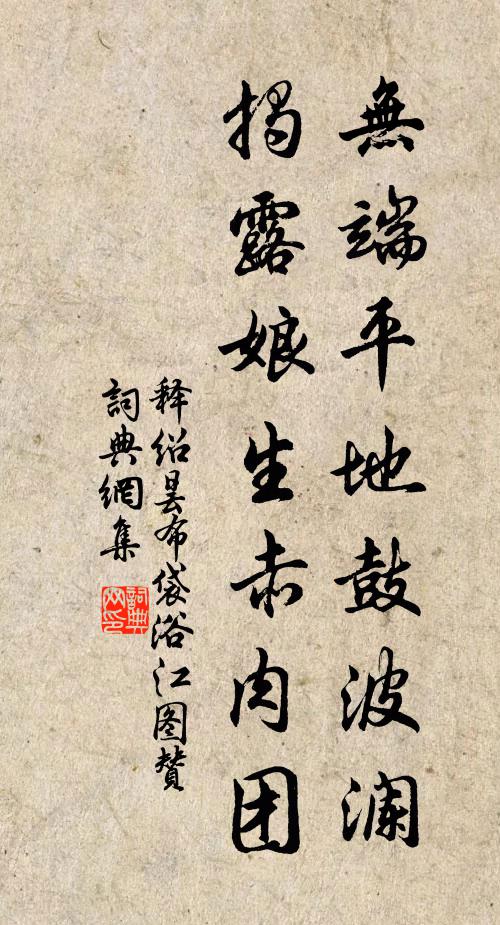 無端平地鼓波瀾
揭露娘生赤肉团
释绍昙布袋浴江图赞
詞典網集
詞典网印